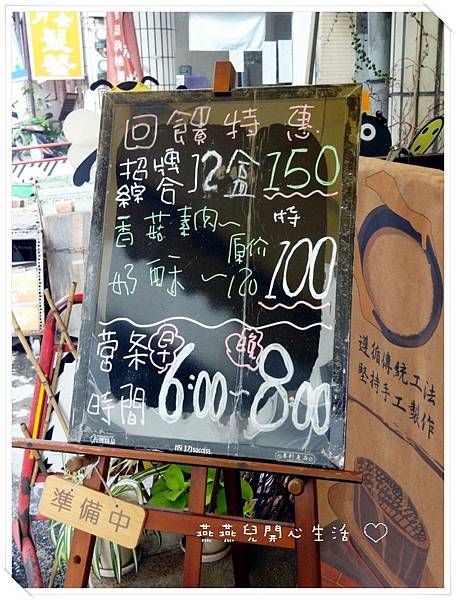 回饋特惠
招牌綜合 12盒 150
香菇素肉~ 特
原价
奶酥 ~120 100
營業 早 晚
時間 6:00-8:00
準備中
遵循傳統工法
堅持手工製作
燕燕兒開心生活♡